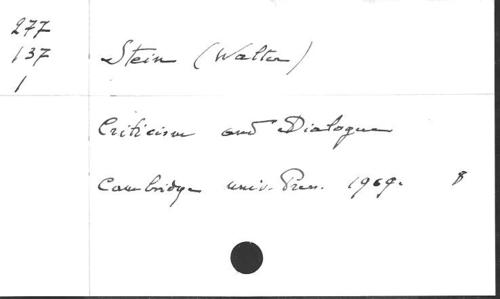 277
137
1
Stein (Walter)
Criticism and Dialogue
Cambridge univ. Press. 1969. 8